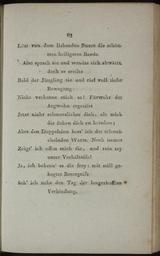 63
Löst von dem liebenden Busen die schön-
sten heiligsten Bande.
Also sprach sie und wandte sich abwärts,
doch es ereilte
Bald der Jüngling sie und rief voll tiefer
Bewegung:
Nicht verkenne mich so! Fürwahr der
Argwohn ergreifet
Jetzt nur schmerzlicher dich, als mich
die
Aber den Doppelsinn hass' ich der schmei-
chelnden Worte. Noch immer
Zeigt' ich offen mich dir, und rein war
unser Verhältniss!
Ja, ich bekenn' es dir frey: mit still ge-
hegter Besorgniss
Seh' ich nahe den Tag der langerhofften
Verbindung.